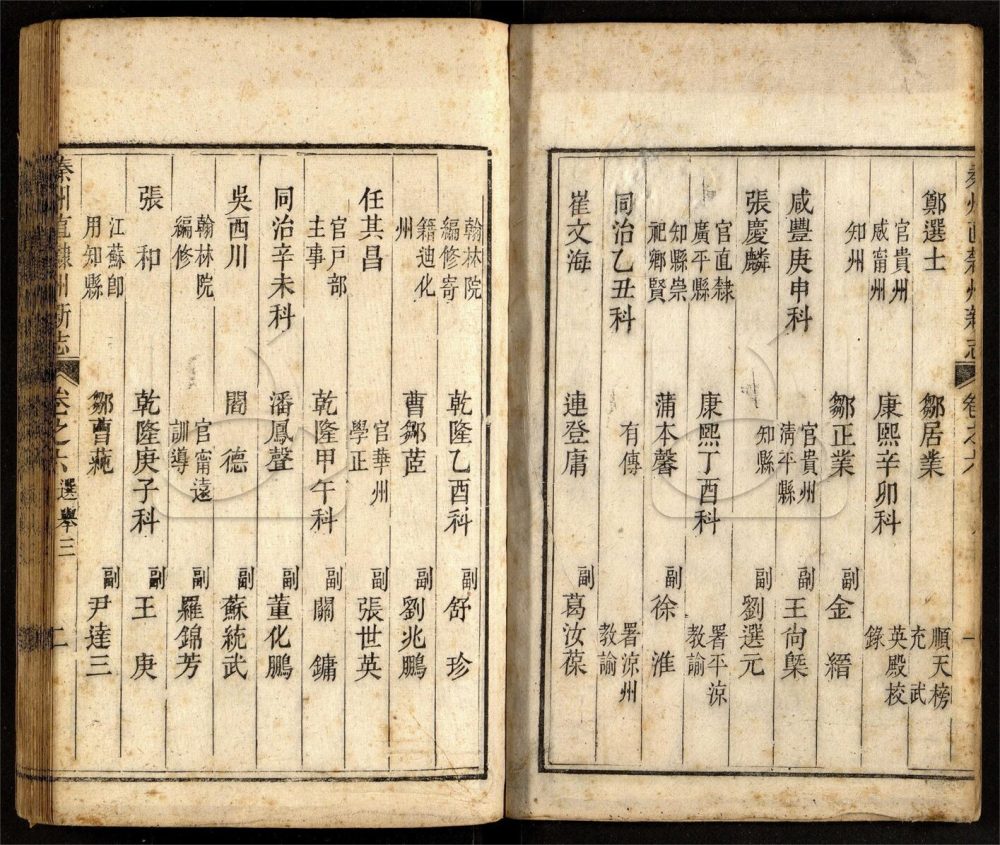 秦州直隸州新志
卷之六
鄭選士
官貴州
咸甯州
知州
咸豐庚申科
張慶麟
官直隸
廣平縣
知縣崇
祀鄉賢
同治乙丑科
崔文海
鄒居業
康熙辛卯科
鄒正業
官貴州
清平縣
知縣
康熙丁酉科
蒲本馨
有傳
連登庸
順天榜
充武
英殿校
錄
副金縉
副王尚槩
副劉選元
署平涼
教諭
副徐淮
署涼州
教諭
副葛汝葆
翰林院
編修寄
籍迪化
州
任其昌
官戶部
主事
同治辛未科
吳西川
翰林院
編修
張和
江蘇即
用知縣
乾隆乙酉科
曹鄒茝
官華州
學正
乾隆甲午科
潘鳳聲
閻德
官甯遠
訓導
乾隆庚子科
鄒曹蒓
副舒珍
副劉兆鵬
副張世英
副關鏞
副董化鵬
副蘇統武
副羅錦芳
副王庚
副尹達三
秦州直隸州新志
卷之六
選舉三
二